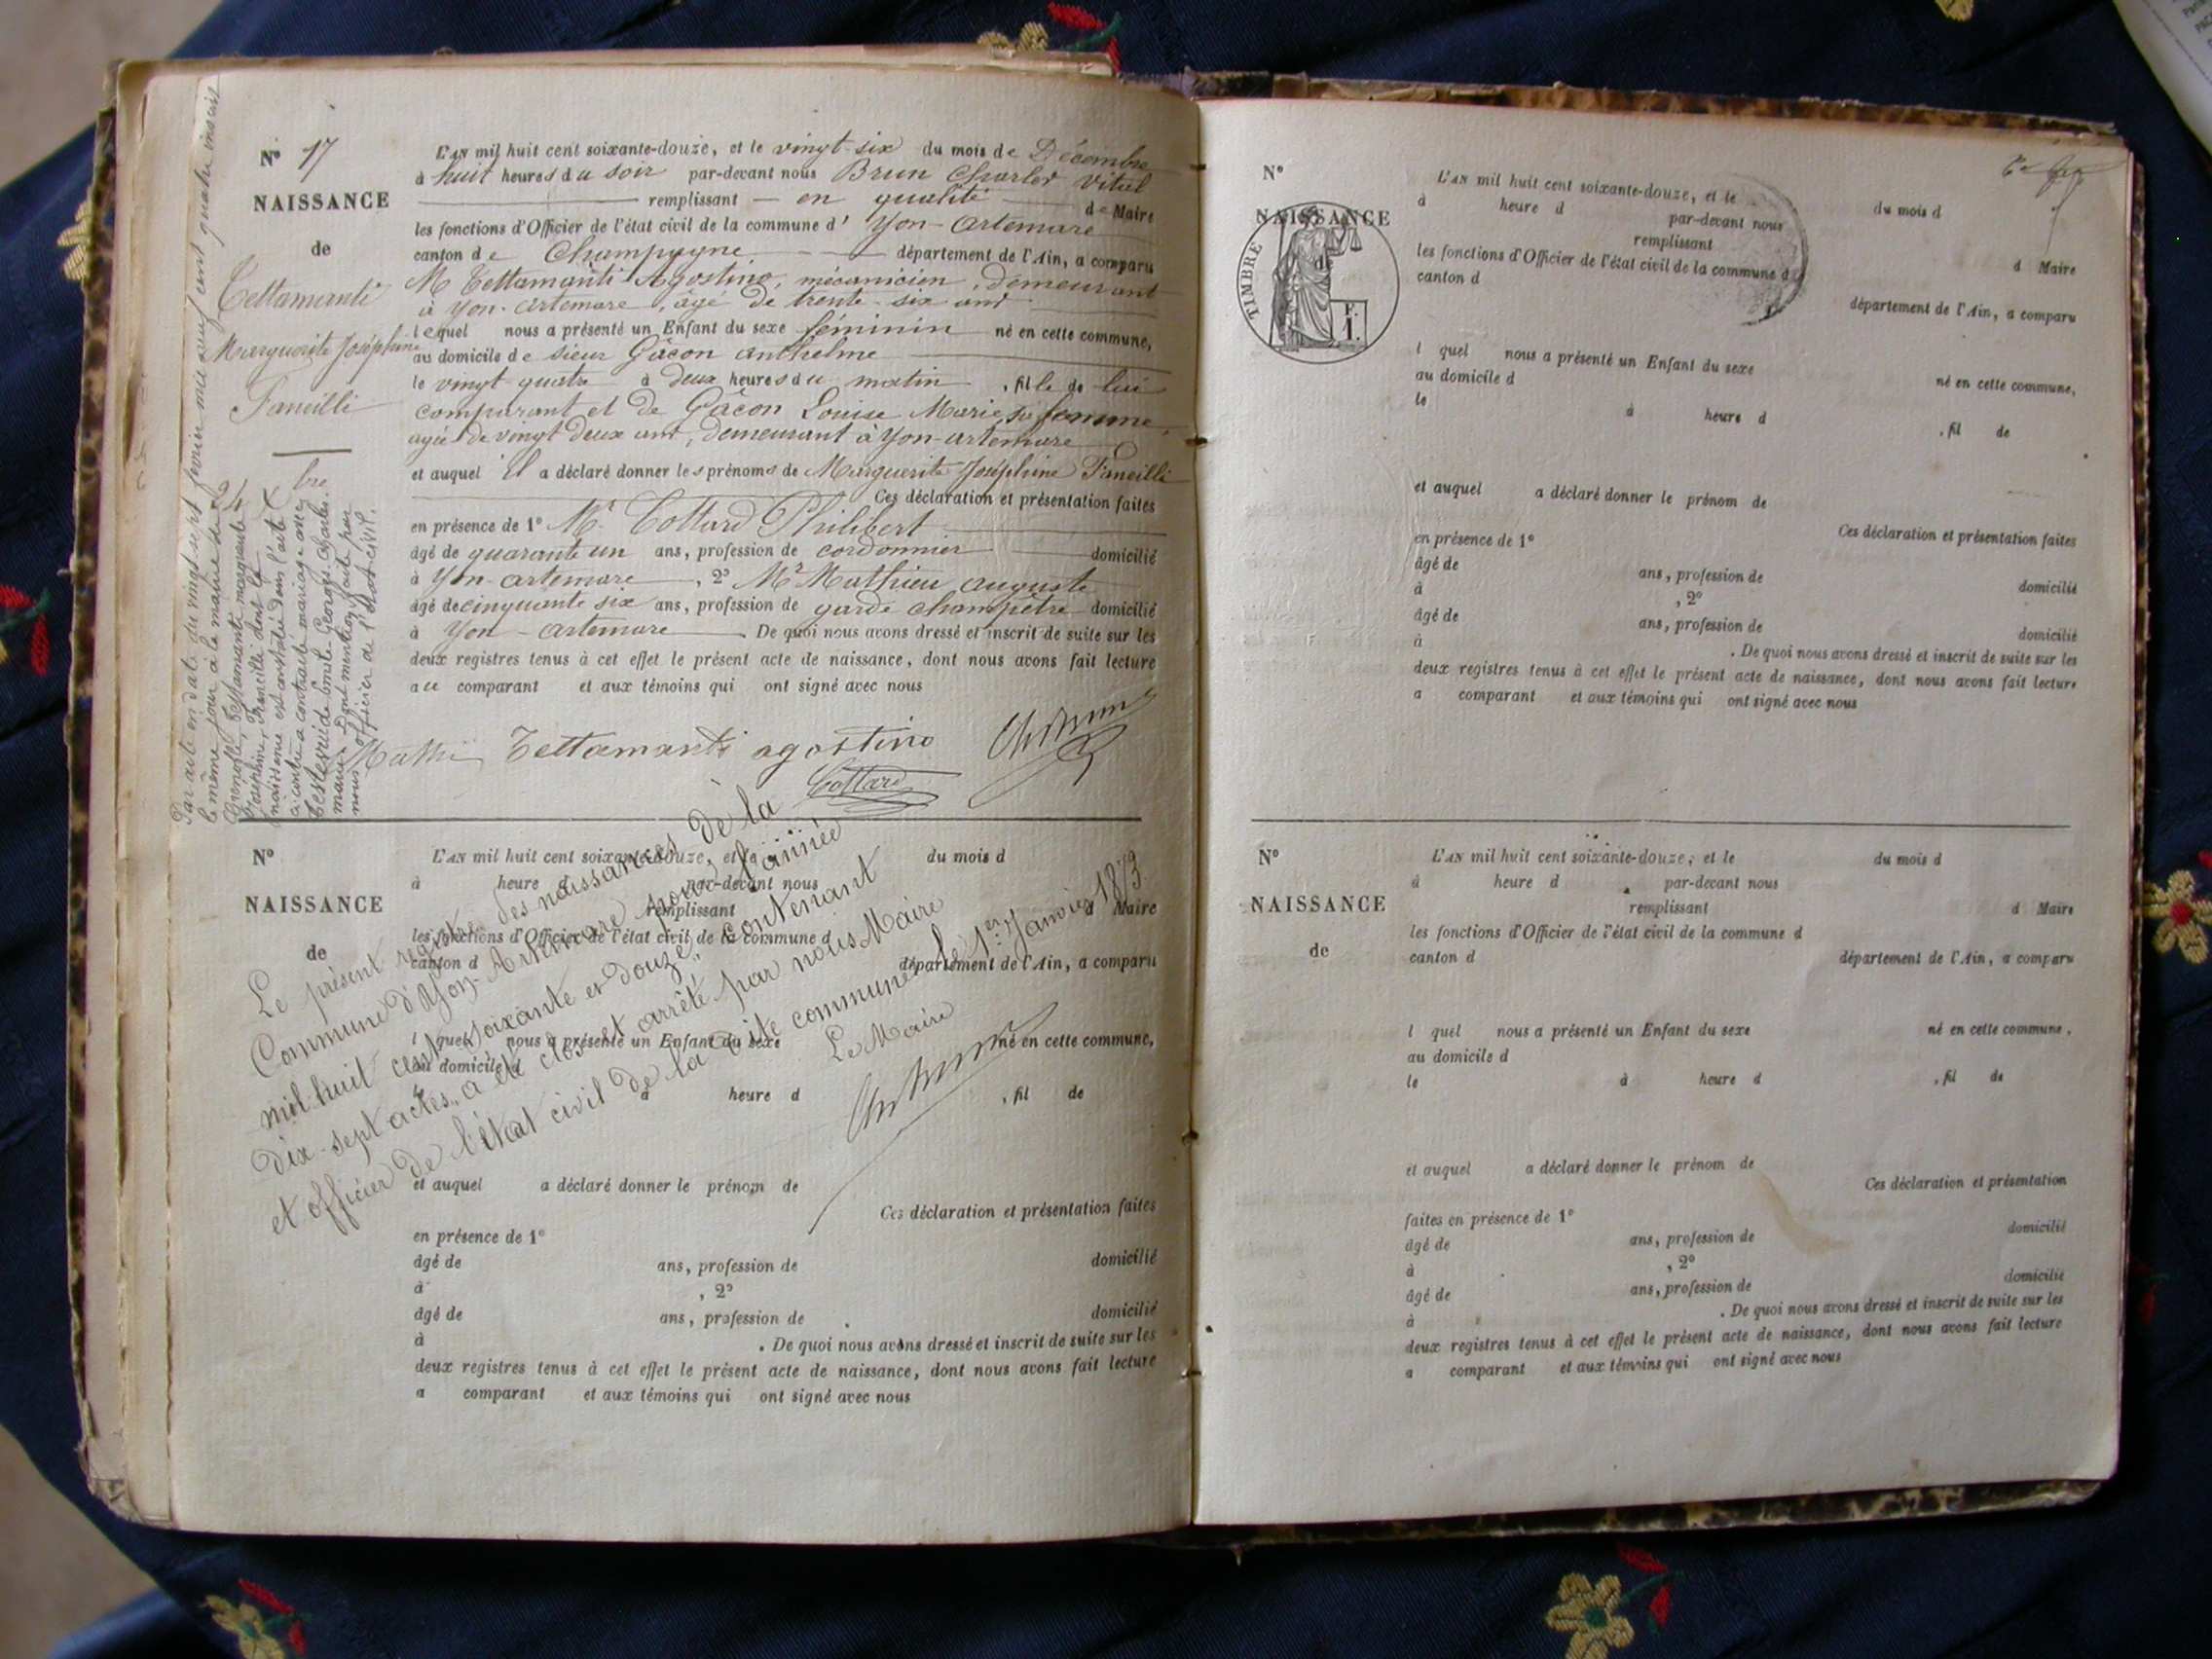 N° 17
NAISSANCE
de
Tettamanti
Marguerite Joséphine
L'AN mil huit cent soixante-douze, et le vingt-six du mois de Décembre
à huit heures du soir par-devant nous Brun Charles Vital
remplissant en qualité de Maire
les fonctions d'Officier de l'état civil de la commune d' Yon-Artemare
canton de Champagne département de l'Ain, a comparu
M Tettamanti Agostino, mécanicien, demeurant
à Yon-Artemare, agé de trente-six ans
lequel nous a présenté un Enfant du sexe féminin né en cette commune,
au domicile de sieur Gâcon Anthelme
le vingt quatre à deux heures du matin, fille de lui
comparant et de Gâcon Louise Marie, sa femme,
agée de vingt deux ans, demeurant à Yon-Artemare
et auquel il a déclaré donner les prénoms de Marguerite Joséphine
Ces déclaration et présentation faites
en présence de 1° Mr Cottard Philibert
âgé de quarante un ans, profession de cordonnier domicilié
à Yon-Artemare, 2° Mr Mathieu Auguste
âgé de cinquante six ans, profession de garde champêtre domicilié
à Yon-Artemare. De quoi nous avons dressé et inscrit de suite sur les
deux registres tenus à cet effet le présent acte de naissance, dont nous avons fait lecture
au comparant et aux témoins qui ont signé avec nous
Tettamanti agostino
Cottard
Par acte en date du vingt sept juin mil neuf cent quatre inscrit
le même jour à la mairie de
Grenoble, Tettamanti Marguerite
Joséphine, dont la
naissance est constatée dans l'acte
ci contre a contracté mariage avec
Emile Georges Charles.
Dont mention faite par
nous officier de l'état civil.
N°
NAISSANCE
de
L'AN mil huit cent soixante-douze, et le du mois d
à heure d par-devant nous
remplissant d Maire
les fonctions d'Officier de l'état civil de la commune d
canton d département de l'Ain, a comparu
l quel nous a présenté un Enfant du sexe né en cette commune,
au domicile d
le à heure d , fil de
et auquel a déclaré donner le prénom de
Ces déclaration et présentation faites
en présence de 1°
âgé de ans, profession de domicilié
à , 2°
âgé de ans, profession de domicilié
à . De quoi nous avons dressé et inscrit de suite sur les
deux registres tenus à cet effet le présent acte de naissance, dont nous avons fait lecture
a comparant et aux témoins qui ont signé avec nous
Le présent registre des naissances de la
Commune d'Yon-Artemare pour l'année
mil huit cent soixante et douze, contenant
dix-sept actes, a été clos et arrêté par nous Maire
et officier de l'état civil de la dite commune le 1er Janvier 1873.
Le Maire
N°
NAISSANCE
de
TIMBRE
L'AN mil huit cent soixante-douze, et le du mois d
à heure d par-devant nous
remplissant d Maire
les fonctions d'Officier de l'état civil de la commune d
canton d département de l'Ain, a comparu
l quel nous a présenté un Enfant du sexe
au domicile d né en cette commune,
le à heure d , fil de
et auquel a déclaré donner le prénom de
Ces déclaration et présentation faites
en présence de 1°
âgé de ans, profession de domicilié
à , 2°
âgé de ans, profession de domicilié
à . De quoi nous avons dressé et inscrit de suite sur les
deux registres tenus à cet effet le présent acte de naissance, dont nous avons fait lecture
a comparant et aux témoins qui ont signé avec nous
N°
NAISSANCE
de
L'AN mil huit cent soixante-douze, et le du mois d
à heure d par-devant nous
remplissant d Maire
les fonctions d'Officier de l'état civil de la commune d
canton d département de l'Ain, a comparu
l quel nous a présenté un Enfant du sexe né en cette commune,
au domicile d
le à heure d , fil de
et auquel a déclaré donner le prénom de
Ces déclaration et présentation
faites en présence de 1°
âgé de ans, profession de domicilié
à , 2°
âgé de ans, profession de domicilié
à . De quoi nous avons dressé et inscrit de suite sur les
deux registres tenus à cet effet le présent acte de naissance, dont nous avons fait lecture
a comparant et aux témoins qui ont signé avec nous